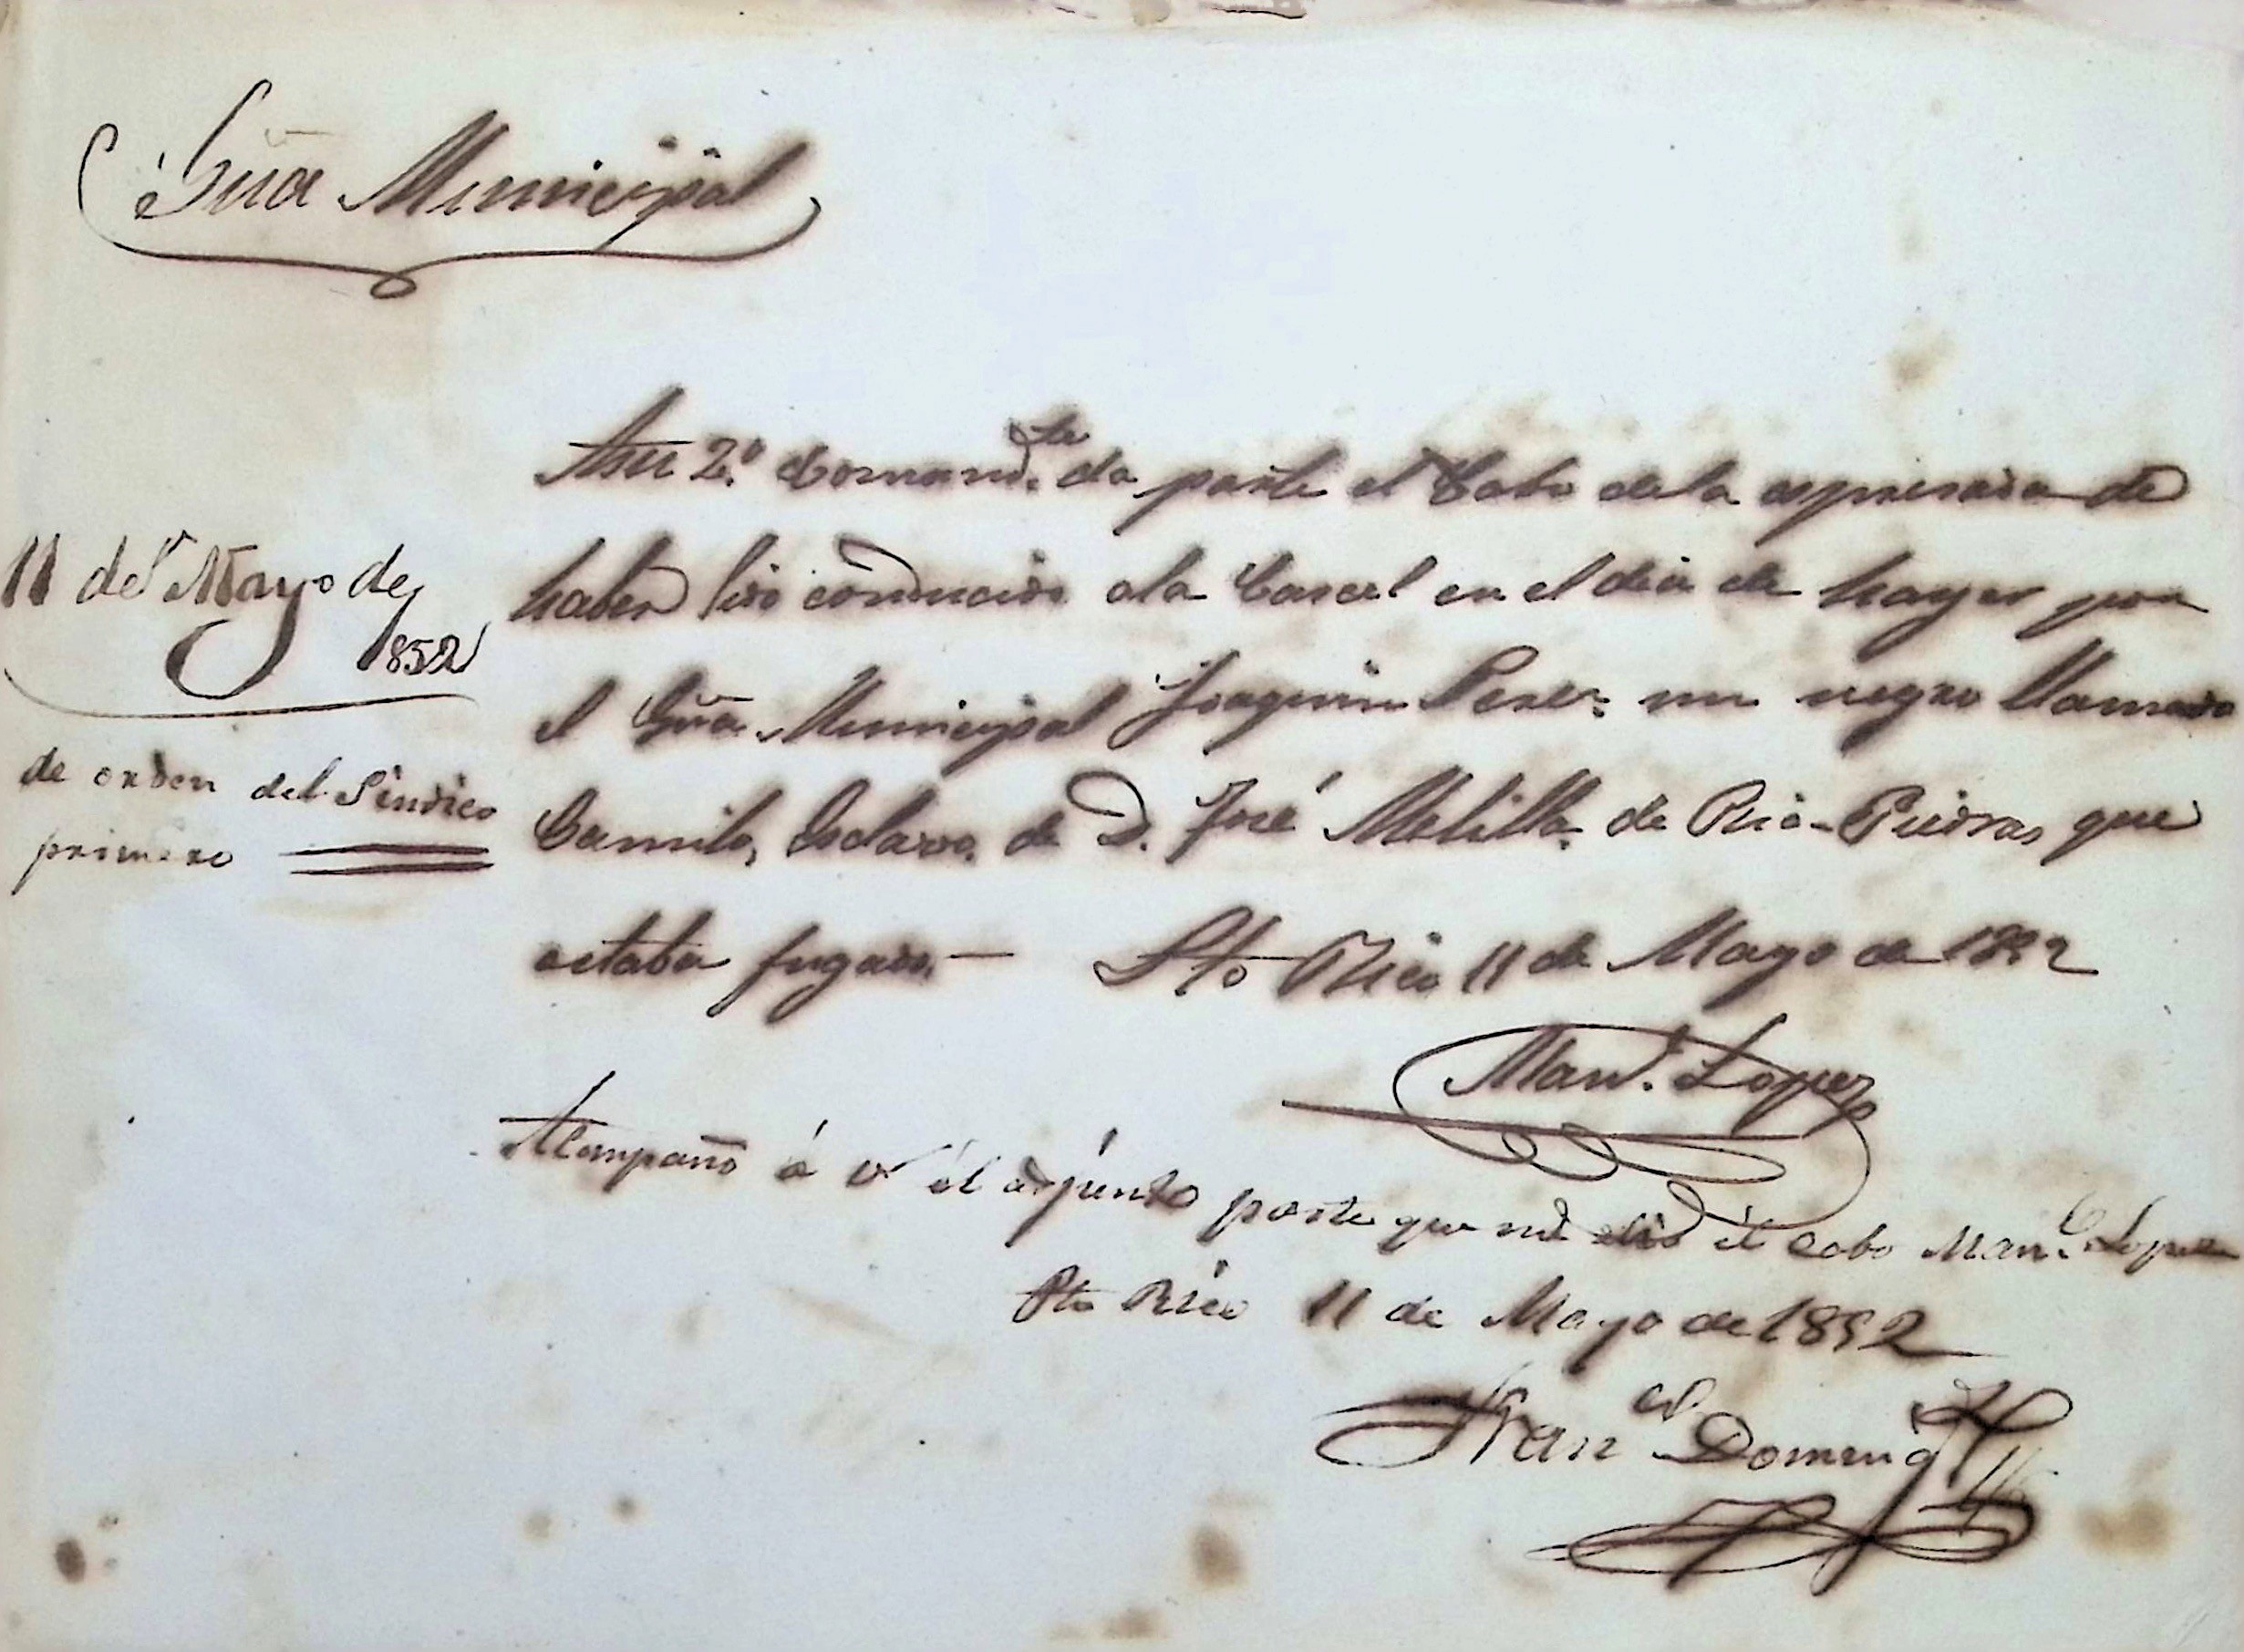 Gũa Municipal
Asu 2º Comandte da parte el Cabo dela espresada de
haber sido conducido ala Carcel en el dia de hayer por
el Gũa Municipal Joaquin Perez un negro llamado
Camilo, Esclavo de D. José Melilla de Rio-Piedras que
estaba fugado — Pto Rico 11 de Mayo de 1852
Manl. Lopez
11 de Mayo de
1852
de orden del Síndico
primero
Acompaño á V el adjunto parte que me dió el cabo Manl. Lopez
Pto Rico 11 de Mayo de 1852
Franco Doming